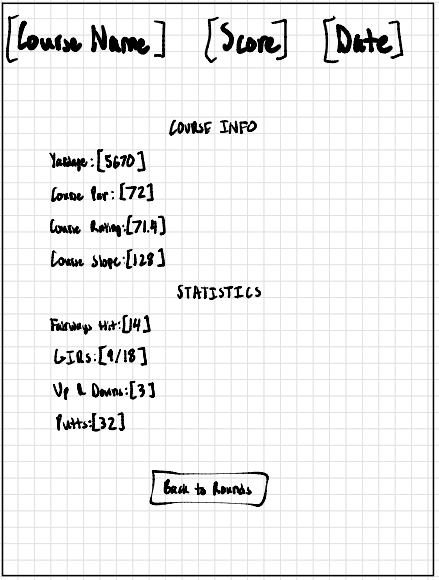 [Course Name] [Score] [Date]
COURSE INFO
Yardage: [5670]
Course Par: [72]
Course Rating: [71.4]
Course Slope: [128]
STATISTICS
Fairways Hit: [14]
GIRs: [9/18]
Up & Downs: [3]
Putts: [32]
Back to Rounds